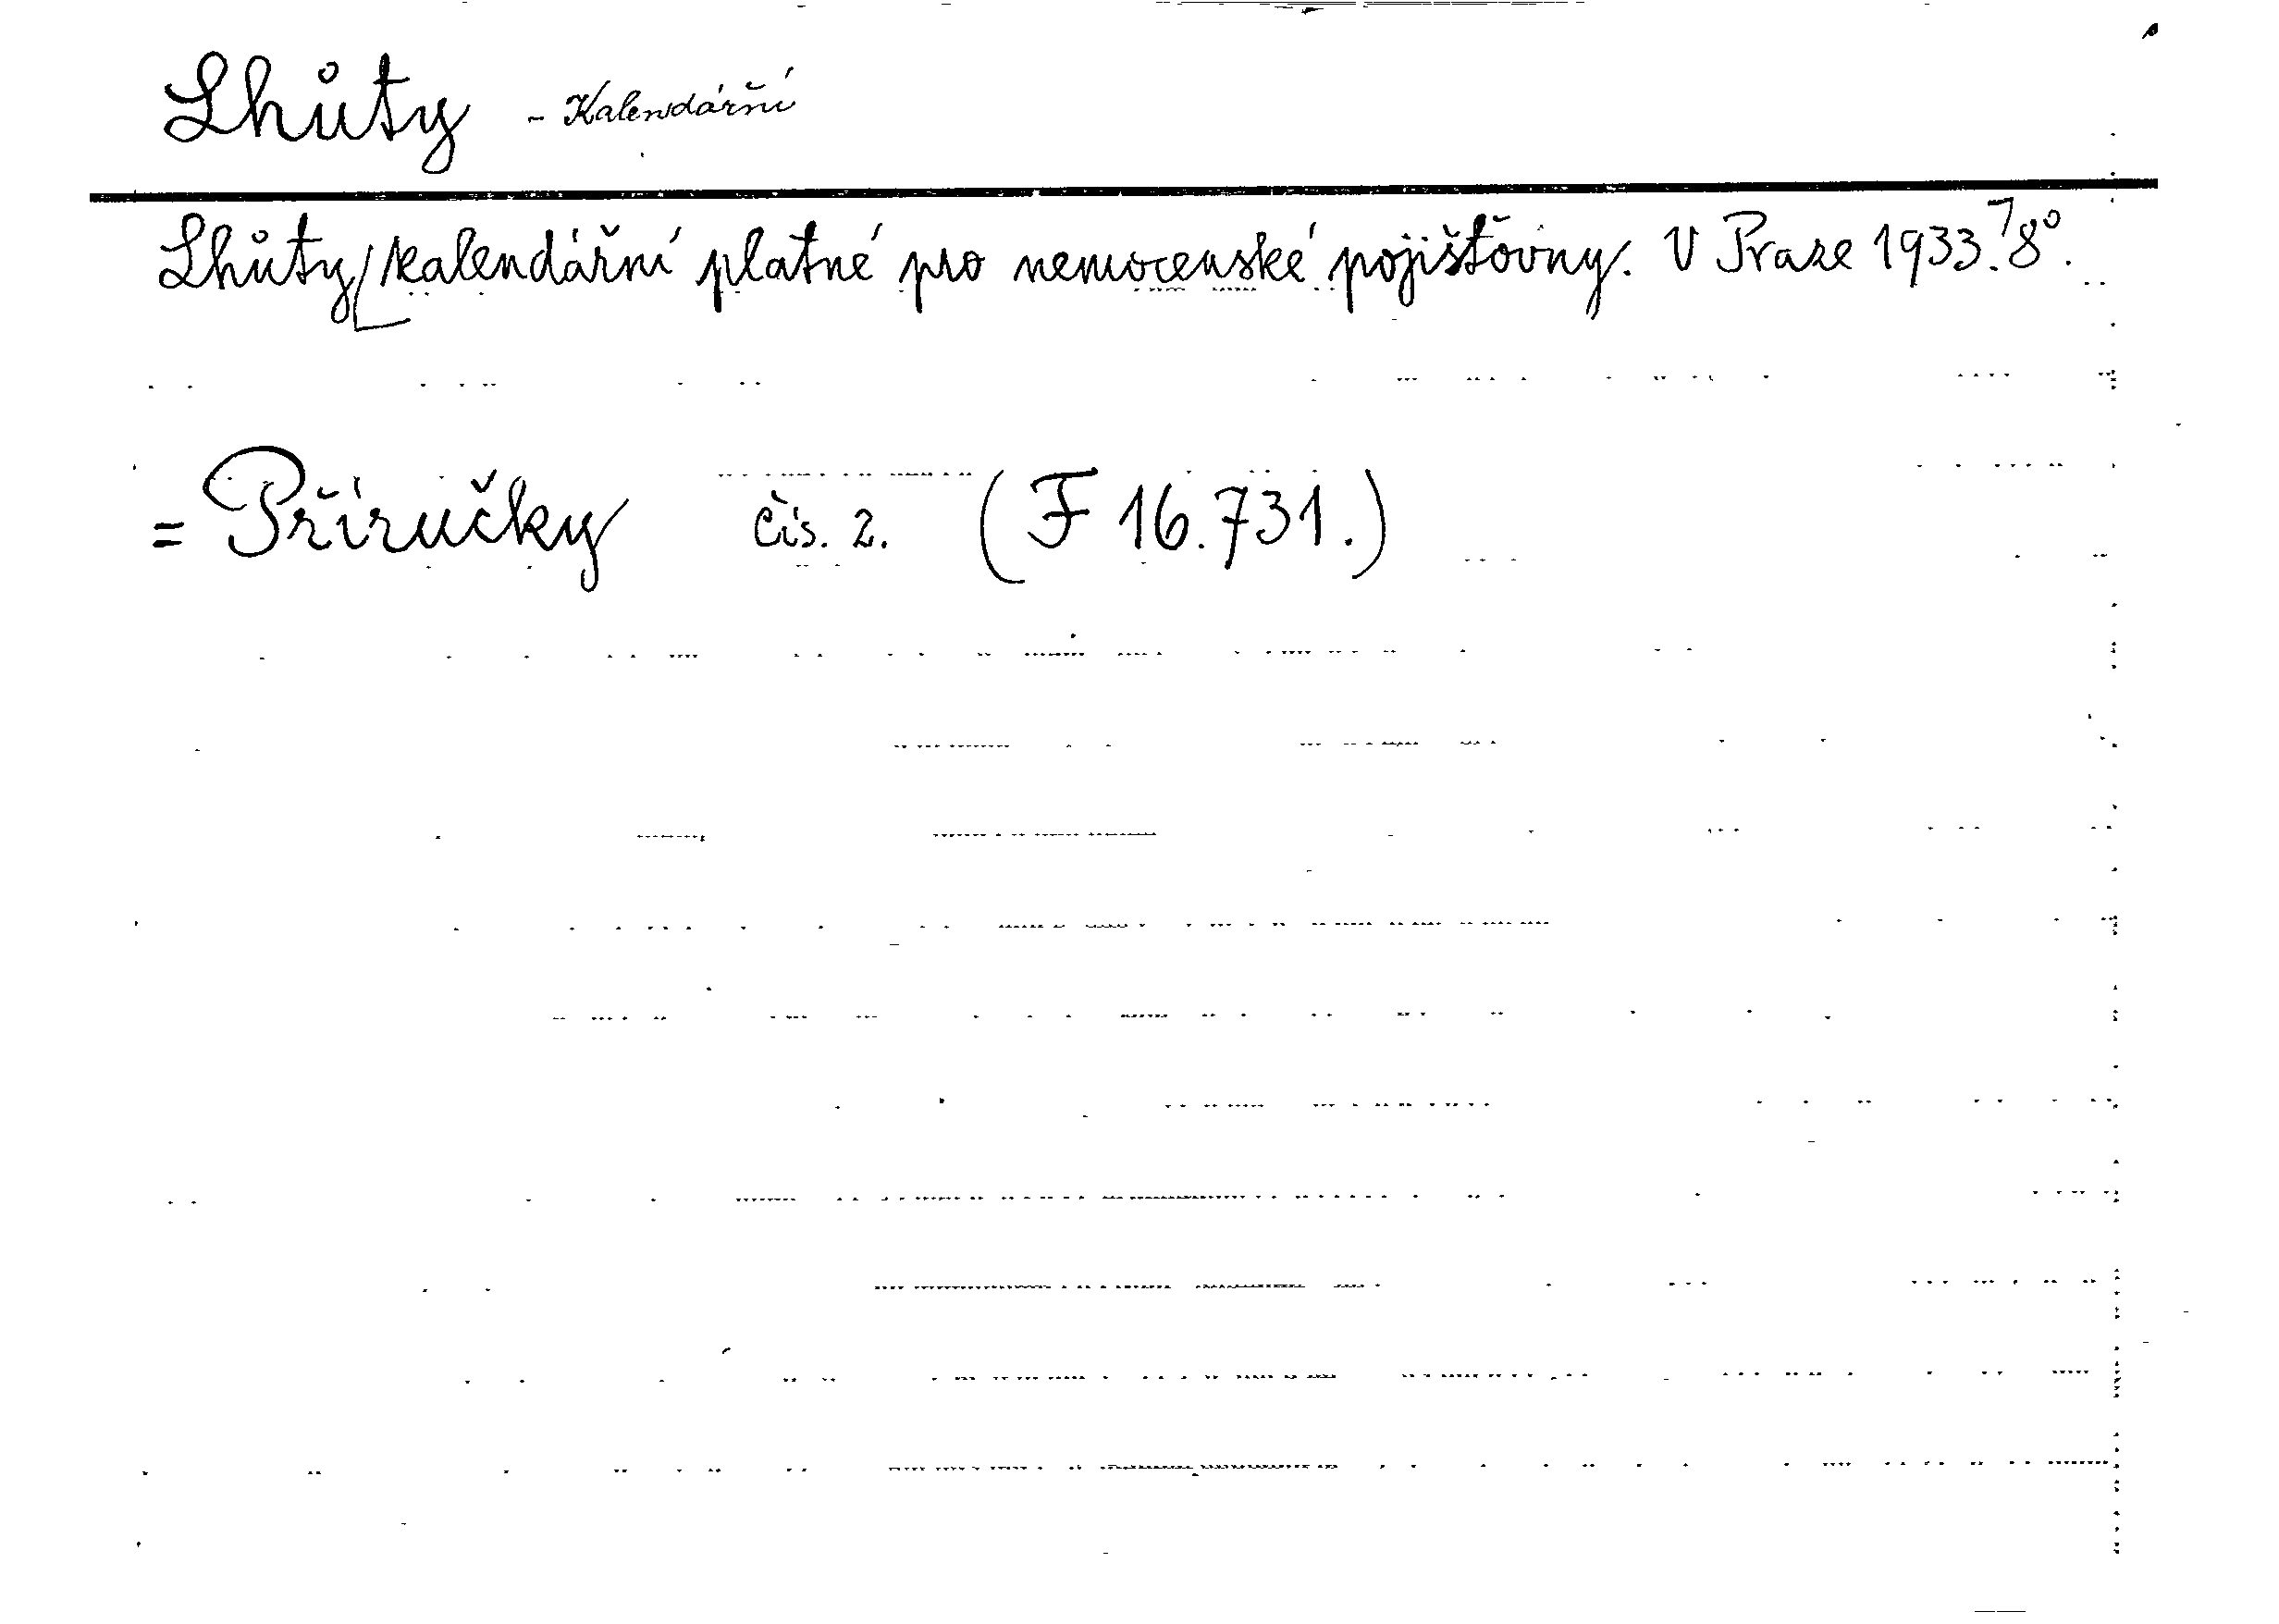 Lhůty - Kalendářní
Lhůty kalendářní platné pro nemocenské pojišťovny. V Praze 1933. 8°.
= Příručky čís. 2. (F 16.731.)